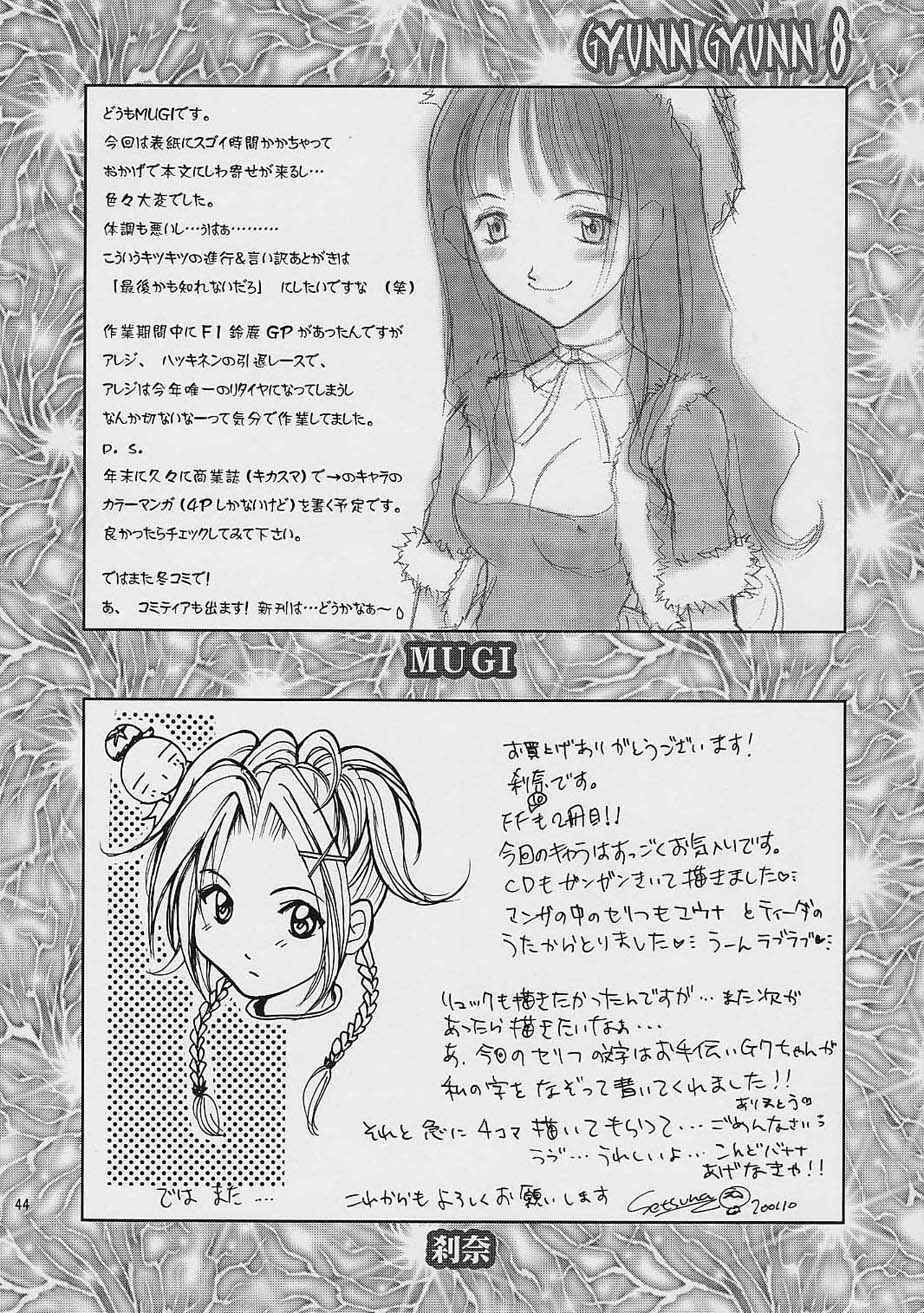 GYUNN GYUNN 8
どうもMUGIです。
今回は表紙にスゴイ時間かかちゃって
おかげで本文にしわ寄せが来るし…
色々大変でした。
体調も悪いし…うはぁ………
こういうキツキツの進行&言い訳あとがきは
「最後かも知れないだろ」 にしたいですな (笑)
作業期間中にF1鈴鹿GPがあったんですが
アレジ、ハッキネンの引退レースで、
アレジは今年唯一のリタイヤになってしまうし
なんか切ないなーって気分で作業してました。
P.S.
年末に久々に商業誌(キカスマ)で→のキャラの
カラーマンガ(4Pしかないけど)を書く予定です。
良かったらチェックしてみて下さい。
ではまた冬コミで!
あ、コミティアも出ます!新刊は…どうかなぁ〜
MUGI
お買上げありがとうございます!
刹奈です。
FF⑩も2冊目!!
今回のキャラはすっごくお気入りです。
CDもガンガンきいて描きました♡…
マンガの中のセリフもユウナとティーダの
うたからとりました♡… うーんラブラブ♡
リュックも描きたかったんですが…また次が
あったら描きたいなぁ…
あ、今回のセリフの字はお手伝いGクちゃんが
私の字をなぞって書いてくれました!!
ありがとう
それと急に4コマ描いてもらって…ごめんなさい
うづ…うれしいよ…こんどバナナ
あげなきゃ!!
では また…
これからもよろしくお願いします
Setsuna 2001.10
44
刹奈